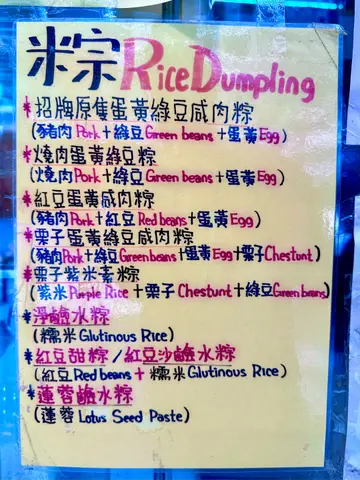 米宗 Rice Dumpling
*招牌原隻蛋黃綠豆咸肉粽
(豬肉 Pork + 綠豆 Green beans + 蛋黃 Egg)
*燒肉蛋黃綠豆粽
(燒肉 Pork + 綠豆 Green beans + 蛋黃 Egg)
*紅豆蛋黃咸肉粽
(豬肉 Pork + 紅豆 Red beans + 蛋黃 Egg)
*栗子蛋黃綠豆咸肉粽
(豬肉 Pork + 綠豆 Green beans + 蛋黃 Egg + 栗子 Chestunt)
*栗子紫米素粽
(紫米 Purple Rice + 栗子 Chestunt + 綠豆 Green beans)
*淨鹼水粽
(糯米 Glutinous Rice)
*紅豆甜粽 / 紅豆沙鹼水粽
(紅豆 Red beans + 糯米 Glutinous Rice)
*蓮蓉鹼水粽
(蓮蓉 Lotus Seed Paste)